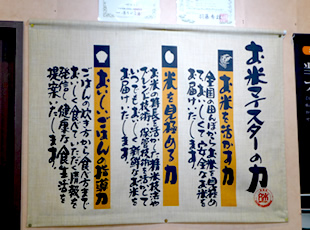 お米マイスターの力
お米を活かす力
全国の田んぼからお米を見極め
おいしくて安全なお米を
お届けいたします。
米を見極める力
お米の特長を活かした精米技法や
ブレンド技術、保管技術を活かして
いつでもおいしく新鮮なお米を
お届けいたします。
おいしいごはんの指南力
ごはんの炊き方から食べ方まで
おいしく食べていただく情報を
発信し健康な食生活を
提案いたします。